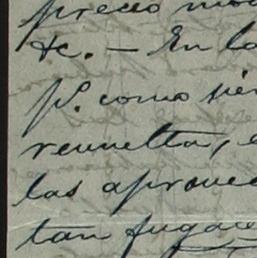 precio mo
&c. — En lo
pª. como sie
revuelta, e
las aprovec
tan fugace